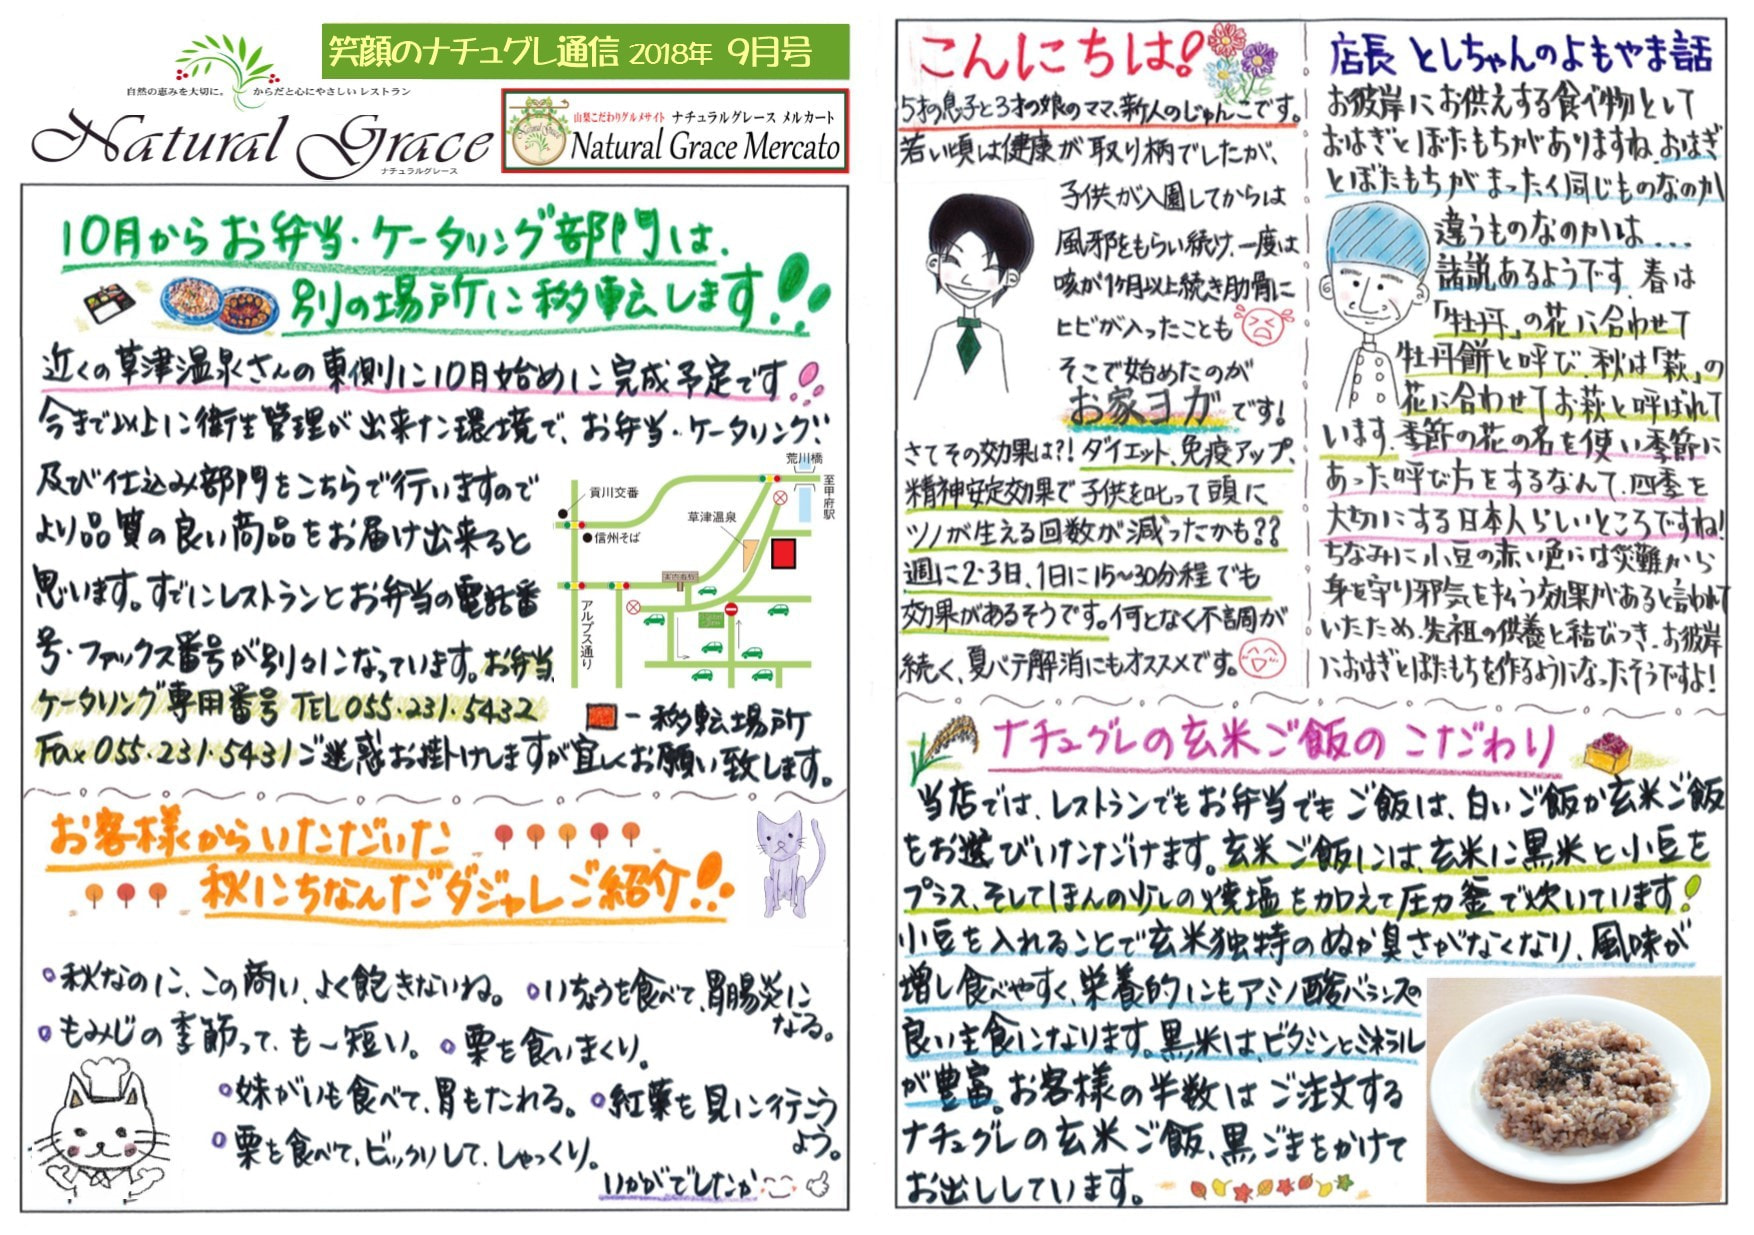 笑顔のナチュグレ通信 2018年 9月号
自然の恵みを大切に。 からだと心にやさしい レストラン
Natural Grace
ナチュラルグレース
山梨こだわりグルメサイト ナチュラルグレース メルカート
Natural Grace Mercato
10月からお弁当・ケータリング部門は、
別の場所に移転します!!
近くの草津温泉さんの東側に10月始めに完成予定です!
今まで以上に衛生管理が出来た環境で、お弁当・ケータリング
及び仕込み部門をこちらで行いますので
より品質の良い商品をお届け出来ると
思います。すでにレストランとお弁当の電話番
号・ファックス番号が別々になっています。お弁当、
ケータリング専用番号 TEL 055・231・5432
Fax 055・231・5431ご迷惑お掛けしますが宜しくお願い致します。
荒川橋
至甲府駅
貢川交番
草津温泉
信州そば
案内看板
アルプス通り
ー移転場所
お客様からいただいた
秋にちなんだダジャレご紹介!!
秋なのに、この商い、よく飽きないね。
いちょうを食べて、胃腸炎に
なる。
もみじの季節って、も〜短い。
栗を食いまくり。
妹がいも食べて、胃もたれる。
紅葉を見に行こう
よう。
栗を食べて、ビックリして、しゃっくり。
いかがでしたか
こんにちは!
5才の息子と3才の娘のママ、新人のじゅんこです。
若い頃は健康が取り柄でしたが、
子供が入園してからは
風邪をもらい続け、一度は
咳が1ヶ月以上続き肋骨に
ヒビが入ったことも
そこで始めたのが
お家ヨガです!
さてその効果は?!ダイエット、免疫アップ、
精神安定効果で子供を叱って頭に
ツノが生える回数が減ったかも??
週に2・3日、1日に15〜30分程でも
効果があるそうです。何となく不調が
続く、夏バテ解消にもオススメです。
店長 としちゃんのよもやま話
お彼岸にお供えする食べ物として
おはぎとぼたもちがありますね。おはぎ
とぼたもちがまったく同じものなのか
違うものなのかは...
諸説あるようです。春は
「牡丹」の花に合わせて
牡丹餅と呼び、秋は「萩」の
花に合わせてお萩と呼ばれて
います。季節の花の名を使い季節に
あった呼び方をするなんて、四季を
大切にする日本人らしいところですね!
ちなみに小豆の赤い色には災難から
身を守り邪気を払う効果があると言われて
いたため、先祖の供養と結びつき、お彼岸
におはぎとぼたもちを作るようになったそうですよ!
ナチュグレの玄米ご飯のこだわり
当店では、レストランでもお弁当でもご飯は、白いご飯か玄米ご飯
をお選びいただけます。玄米ご飯には、玄米に黒米と小豆を
プラス、そしてほんの少しの焼塩を加えて圧力釜で炊いています!
小豆を入れることで玄米独特のぬか臭さがなくなり、風味が
増し食べやすく、栄養的にもアミノ酸バランスの
良い主食になります。黒米は、ビタミンとミネラル
が豊富。お客様の半数はご注文する
ナチュグレの玄米ご飯、黒ごまをかけて
お出ししています。